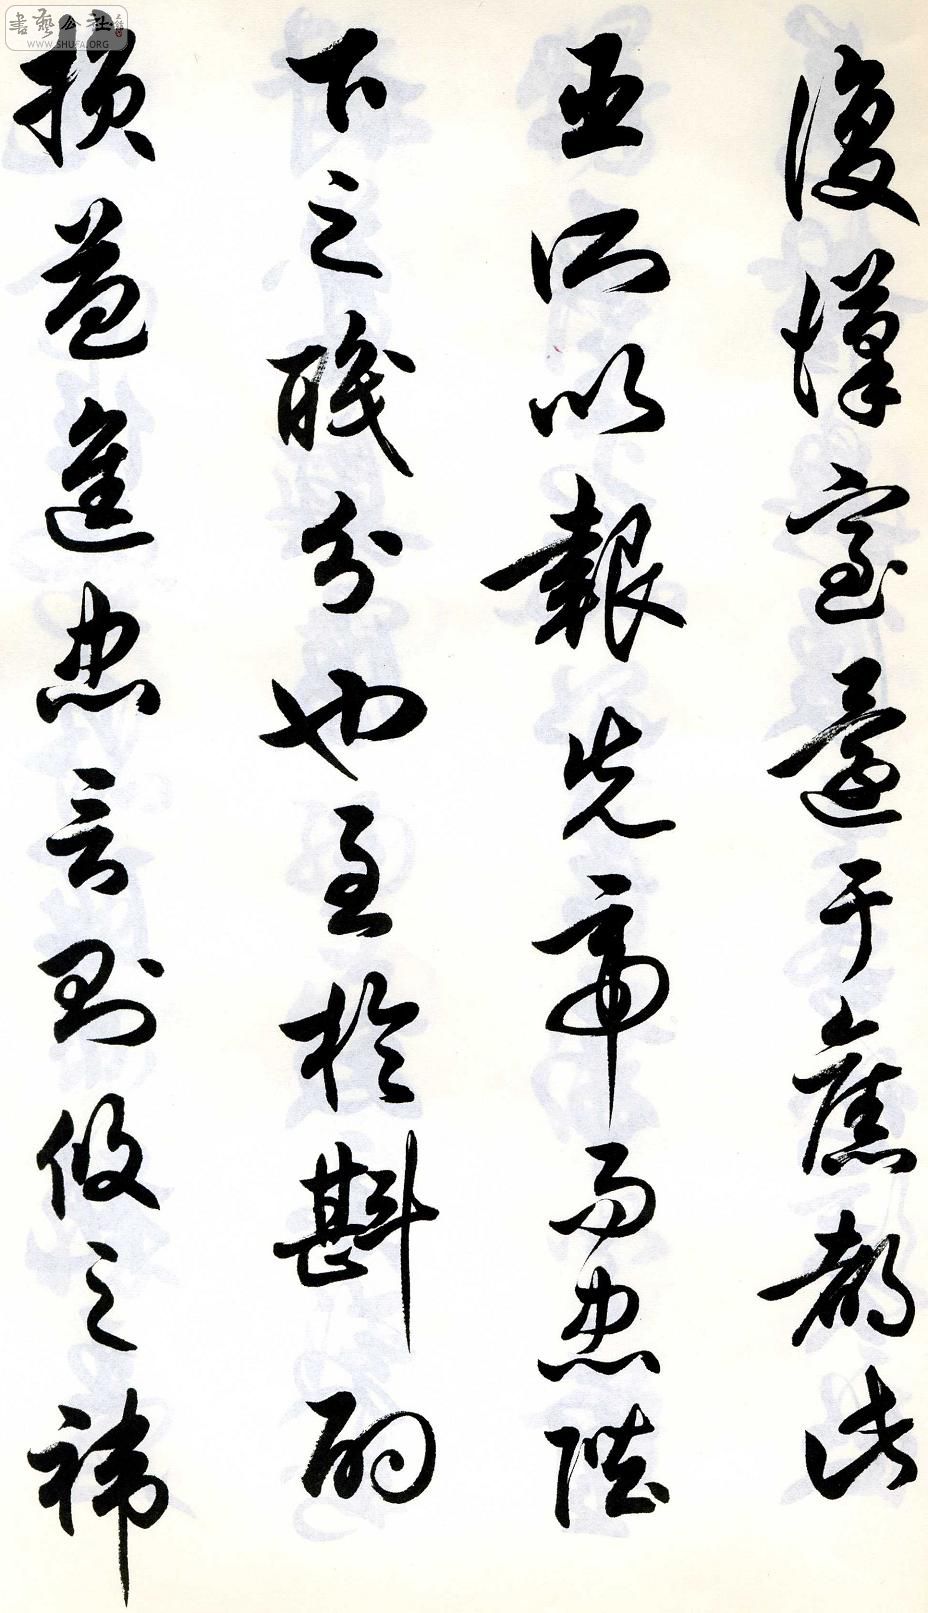 書藝公社
WWW.SHUFA.ORG
復漢室還于舊都此
臣所以報先帝而忠陛
下之職分也至於斟酌
損益進忠言則攸之禕